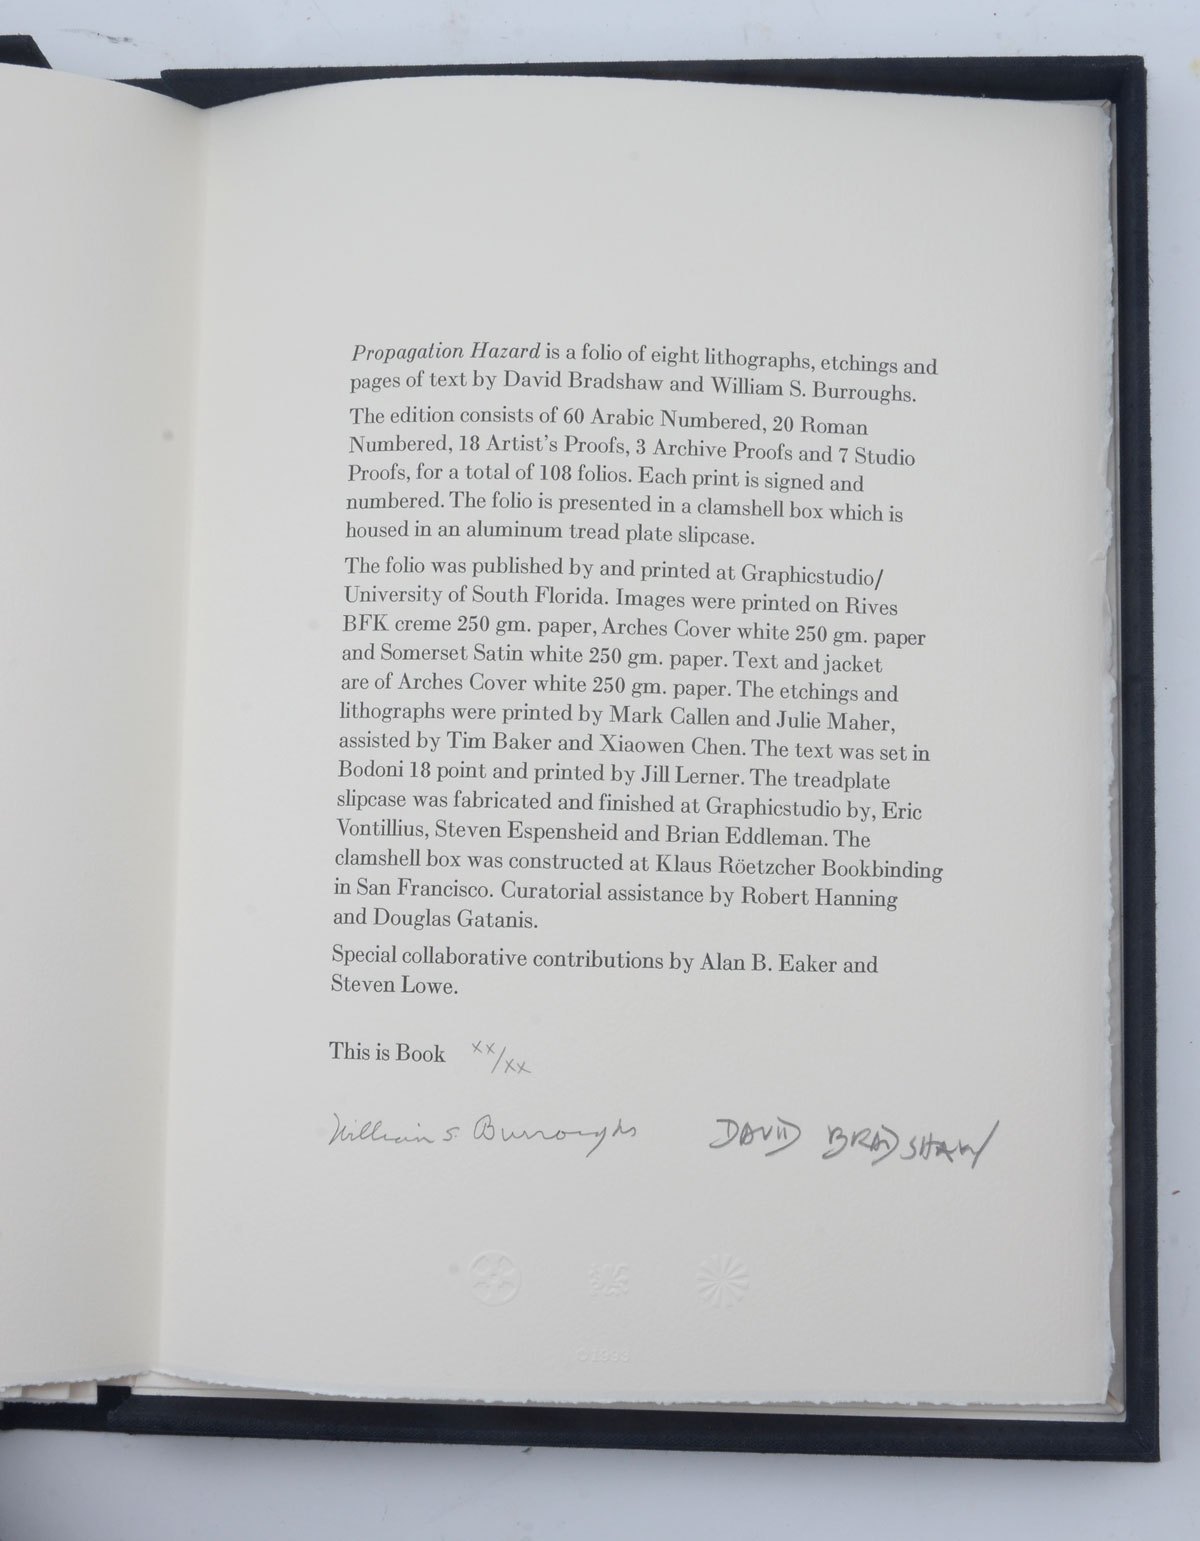 Propagation Hazard is a folio of eight lithographs, etchings and
pages of text by David Bradshaw and William S. Burroughs.
The edition consists of 60 Arabic Numbered, 20 Roman
Numbered, 18 Artist's Proofs, 3 Archive Proofs and 7 Studio
Proofs, for a total of 108 folios. Each print is signed and
numbered. The folio is presented in a clamshell box which is
housed in an aluminum tread plate slipcase.
The folio was published by and printed at Graphicstudio/
University of South Florida. Images were printed on Rives
BFK creme 250 gm. paper, Arches Cover white 250 gm. paper
and Somerset Satin white 250 gm. paper. Text and jacket
are of Arches Cover white 250 gm. paper. The etchings and
lithographs were printed by Mark Callen and Julie Maher,
assisted by Tim Baker and Xiaowen Chen. The text was set in
Bodoni 18 point and printed by Jill Lerner. The treadplate
slipcase was fabricated and finished at Graphicstudio by, Eric
Vontillius, Steven Espensheid and Brian Eddleman. The
clamshell box was constructed at Klaus Röetzcher Bookbinding
in San Francisco. Curatorial assistance by Robert Hanning
and Douglas Gatanis.
Special collaborative contributions by Alan B. Eaker and
Steven Lowe.
This is Book xx/xx
William S. Burroughs DAVID BRADSHAW